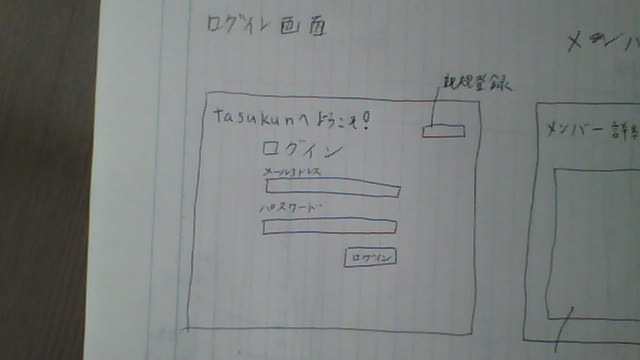 ログイン画面
メンバ
新規登録
Tasukunへようこそ!
ログイン
メールアドレス
パスワード
ログイン
メンバー詳